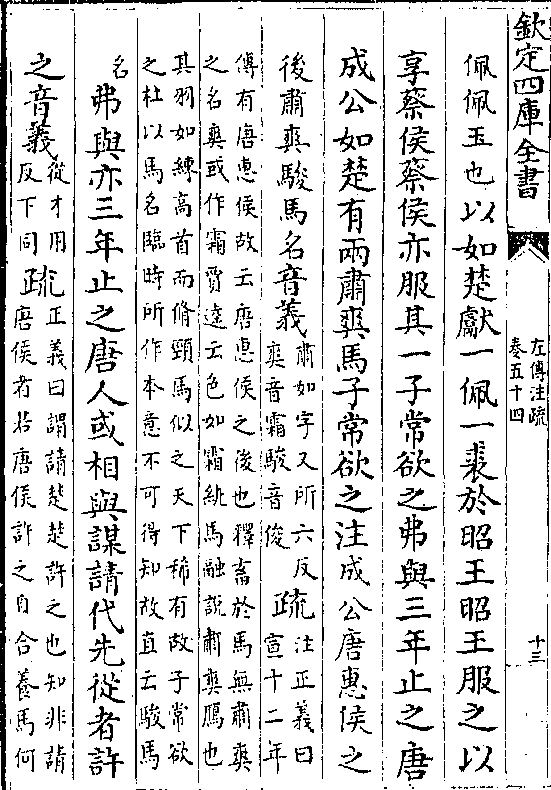 欽定四庫全書
左傳注疏
卷五十四
十三
佩佩玉也以如楚獻一佩一裘於昭王昭王服之以
享蔡侯蔡侯亦服其一子常欲之弗與三年止之唐
成公如楚有兩肅爽馬子常欲之注成公唐惠侯之
後肅爽駿馬名音義
肅如字又所六反
爽音霜駿音俊
疏
注正義曰
宣十二年
傳有唐惠侯故云唐惠侯之後也釋畜於馬無肅爽
之名爽或作霜賈逵云色如霜紈馬融說肅爽鴈也
其羽如練高首而脩頸馬似之天下稀有故子常欲
之杜以馬名臨時所作本意不可得知故直云駿馬
名
弗與亦三年止之唐人或相與謀請代先從者許
之音義
從才用
反下同
疏
正義曰謂請楚楚許之也知非請
唐侯者若唐侯許之自合養馬何